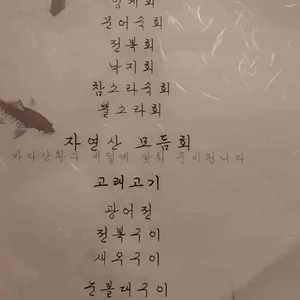 멍게회
문어숙회
전복회
낙지회
참소라숙회
뿔소라회
자연산 모듬회
바다상황과 계절에 맞춰 준비됩니다
고래고기
광어전
전복구이
새우구이
순볼대구이